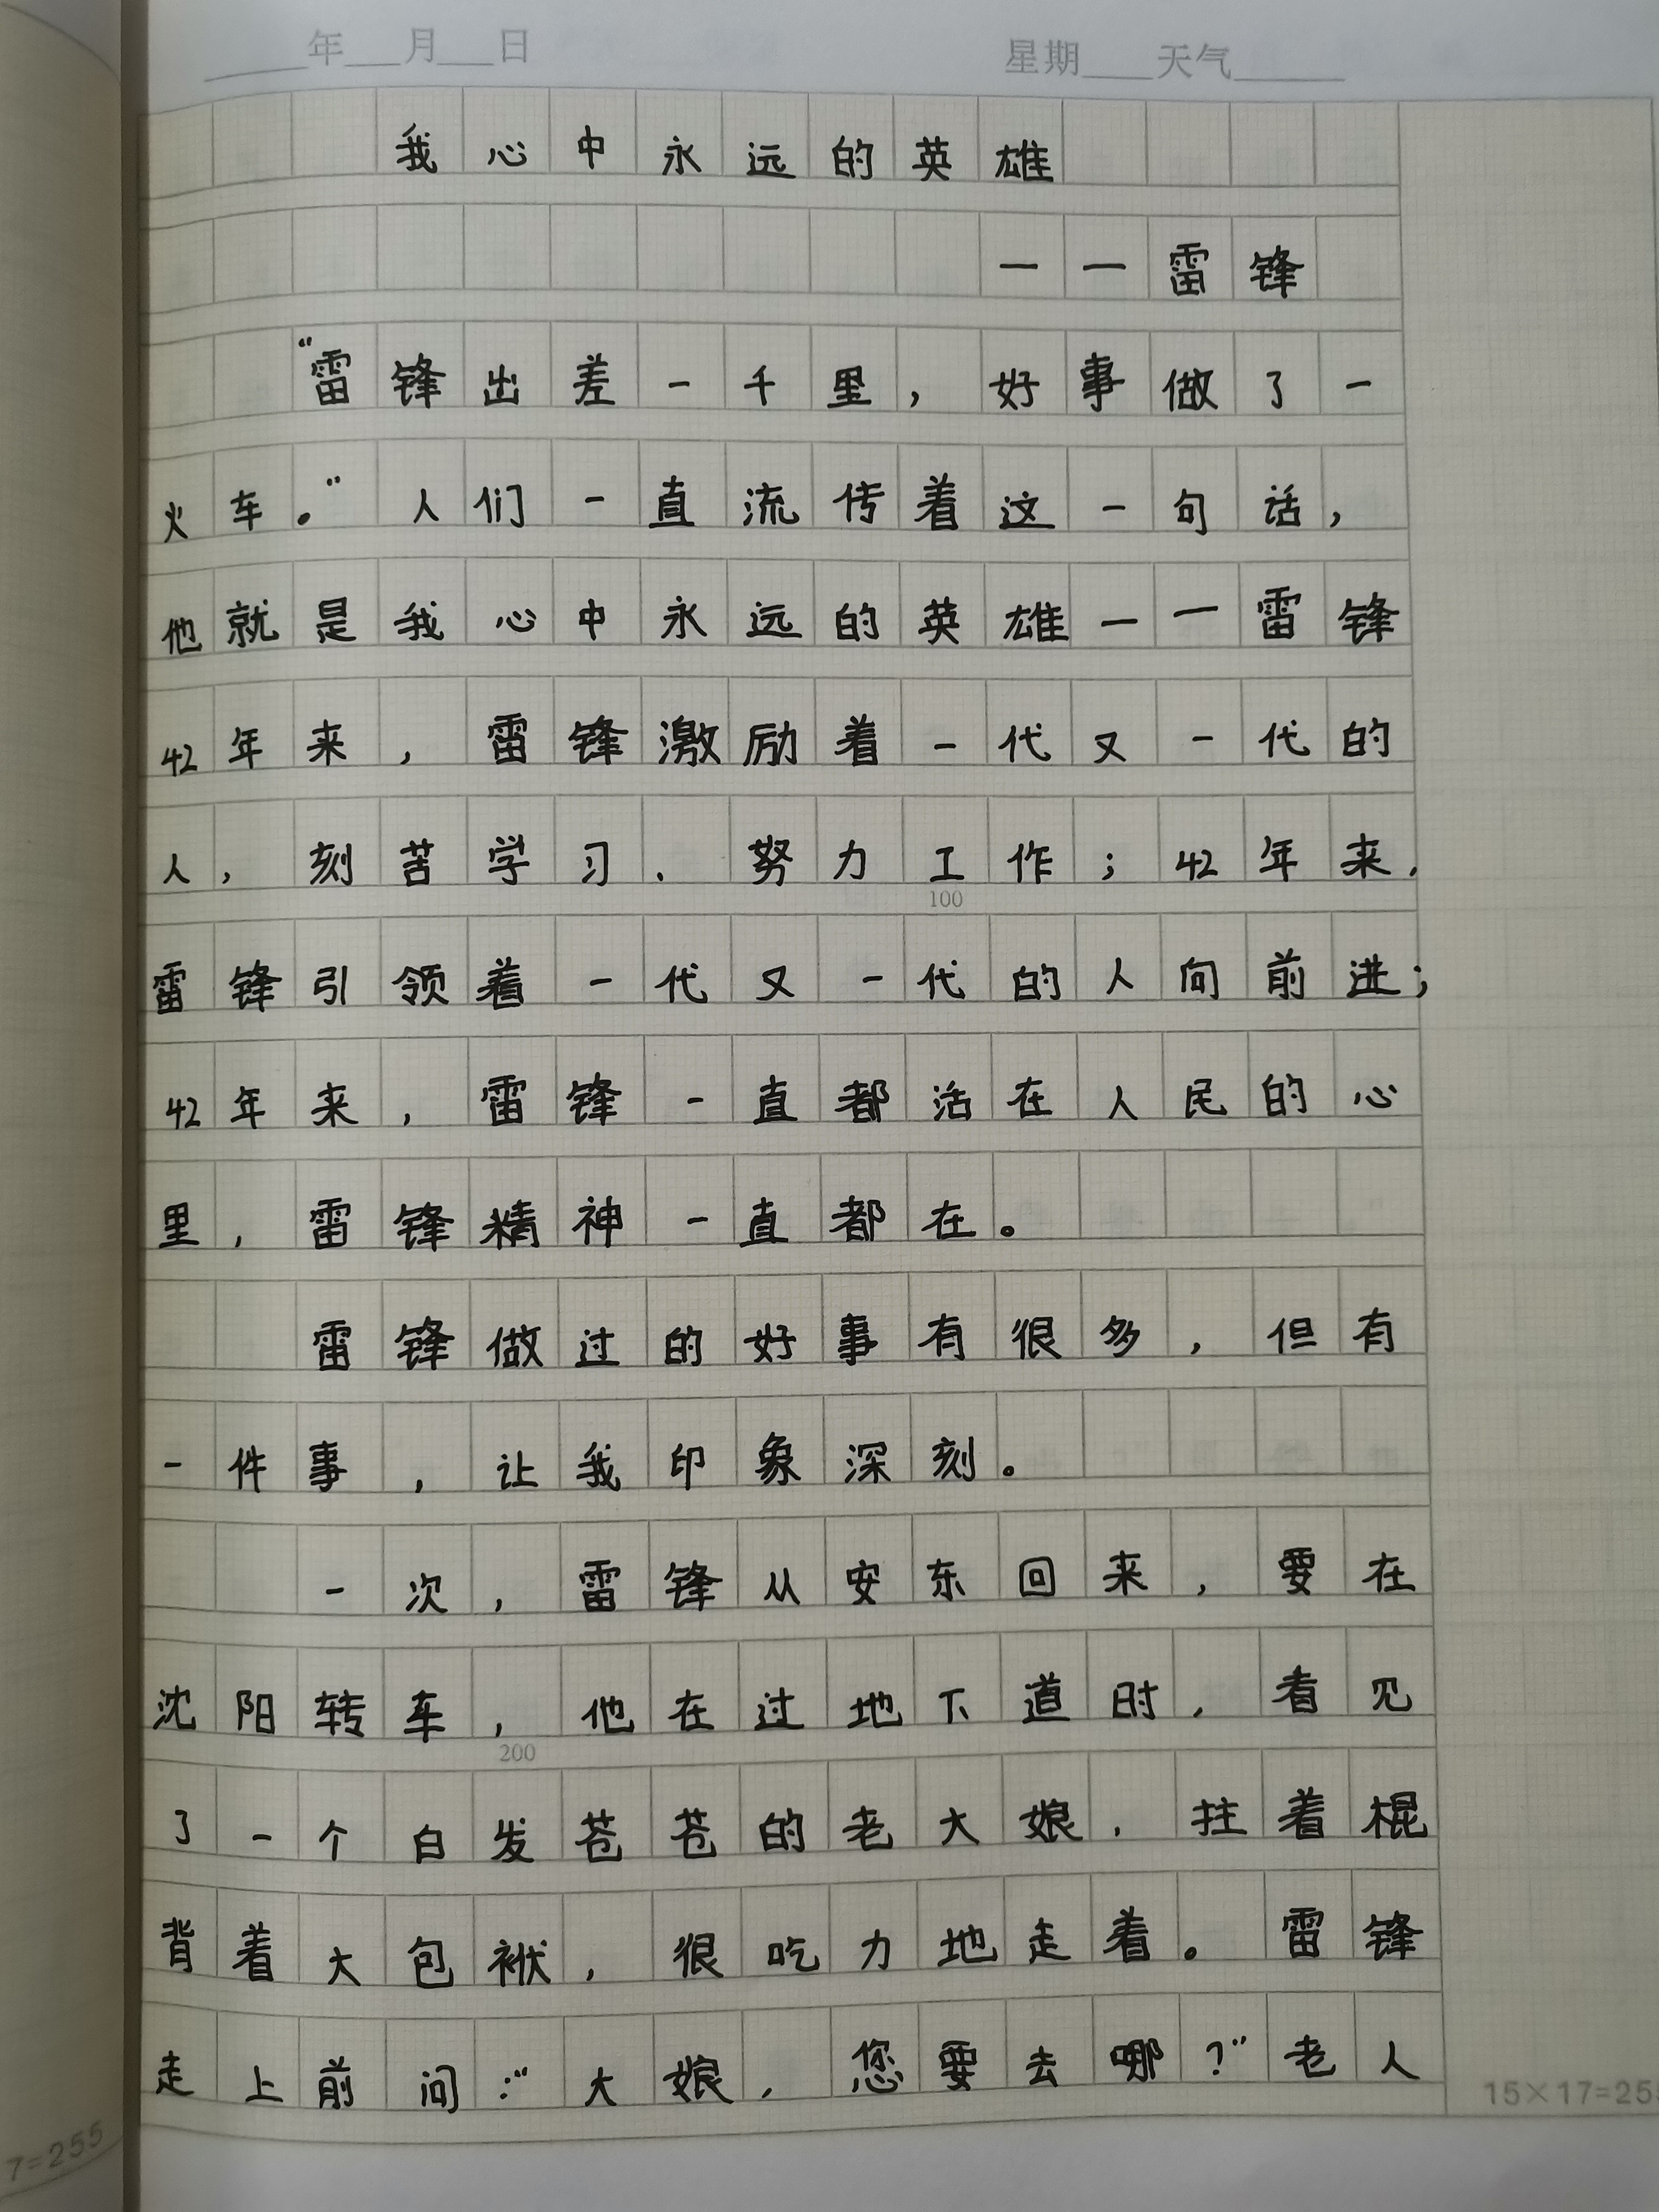 ____年__月__日 星期___天气_____
我心中永远的英雄
——雷锋
“雷锋出差一千里，好事做了一
火车。”人们一直流传着这一句话，
他就是我心中永远的英雄——雷锋
42年来，雷锋激励着一代又一代的
人，刻苦学习、努力工作；42年来，
100
雷锋引领着一代又一代的人向前进；
42年来，雷锋一直都活在人民的心
里，雷锋精神一直都在。
雷锋做过的好事有很多，但有
一件事，让我印象深刻。
一次，雷锋从安东回来，要在
沈阳转车，他在过地下道时，看见
200
了一个白发苍苍的老大娘，拄着棍
背着大包袱，很吃力地走着。雷锋
走上前问：“大娘，您要去哪？”老人
15×17=255
7=255